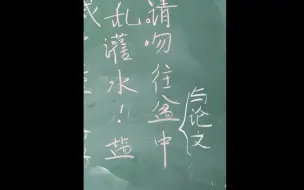 请吻往盆中
与论文
乱灌水!! 盐